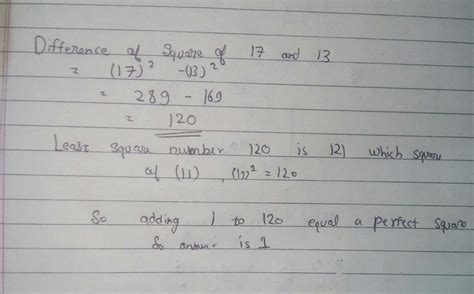 Difference of Square of 17 and 13
= (17)² -(13)²
= 289 - 169
= 120
Least square number 120 is 121 which square
of (11) , (11)² = 120
So adding 1 to 120 equal a perfect square
So answer is 1